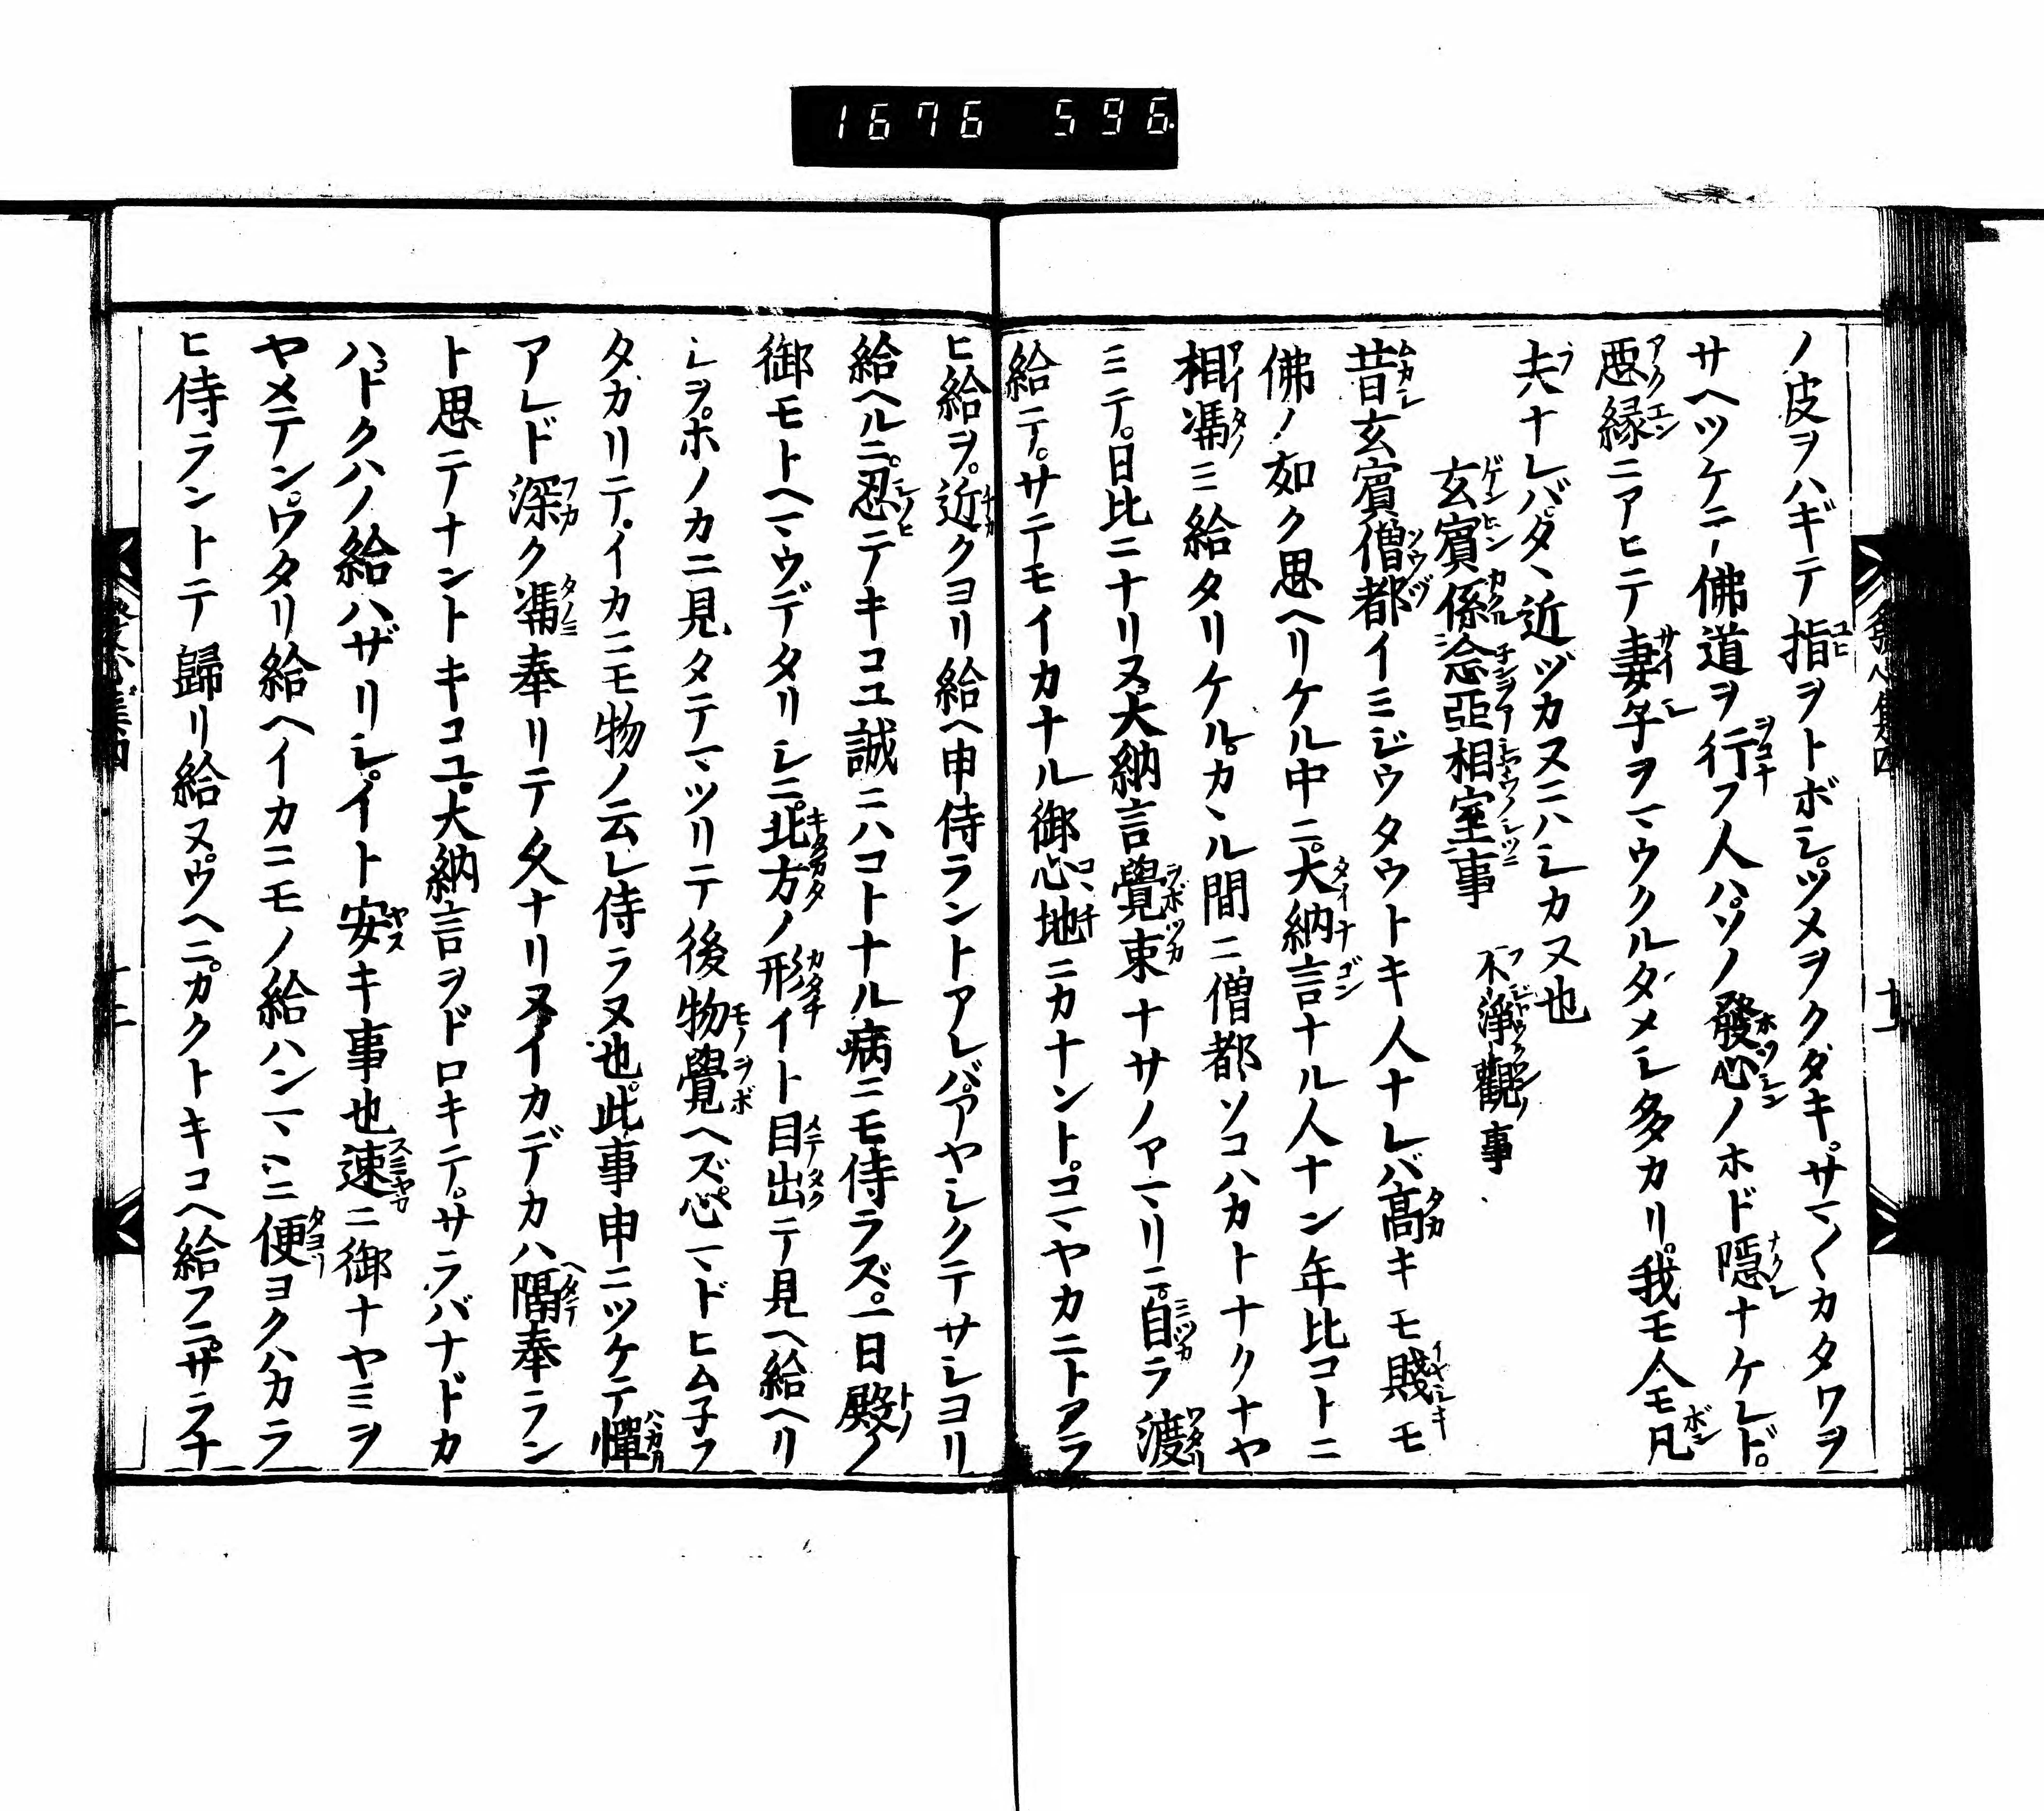 1676 596
ノ皮ヲハギテ指ヲトボシ。ツメヲクダキ。サマ〱カタワヲ
サヘツケテ佛道ヲ行フ人ハ。ソノ發心ノホド隱ナケレド。
惡縁ニアヒテ妻子ヲマウクルタメシ多カリ。我モ人モ凡
夫ナレバ。タヾ近ヅカヌニハシカヌ也
玄賓係念亞相室事　不淨觀事
昔玄賓僧都イミジウタウトキ人ナレバ高キモ賤モ
佛ノ如ク思ヘリケル中ニ。大納言ナル人ナン年比コトニ
相馮ミ給タリケル。カヽル間ニ僧都ソコハカトナクナヤ
ミテ。日比ニナリヌ。大納言覺束ナサノアマリニ。自ラ渡
給テ。サテモイカナル御心地ニカナント。コマヤカニトブラ
ヒ給ヲ。近クヨリ給ヘ申侍ラントアレバ。アヤシクテサシヨリ
給ヘルニ。忍テキコユ誠ニハコトナル病ニモ侍ラズ。一日殿ノ
御モトヘマウデタリシニ。北方ノ形イト目出テ見ヘ給ヘリ
シヲ。ホノカニ見タテマツリテ後物覺ヘズ。心マドヒムネフ
タガリテ。イカニモ物ノ云レ侍ラヌ也。此事申ニツケテ憚
アレド深ク馮奉リテ久ナリヌ。イカデカハ隔奉ラン
ト思テナントキコユ。大納言ヲドロキテ。サラバナドカ
ハ。トクハノ給ハザリシ。イト安キ事也速ニ御ナヤミヲ
ヤメテン。ワタリ給ヘイカニモノ給ハンマヽニ便ヨクハカラ
ヒ侍ラントテ歸リ給ヌ。ウヘニ。カクトキコヘ給フニ。サラナ
發心集四